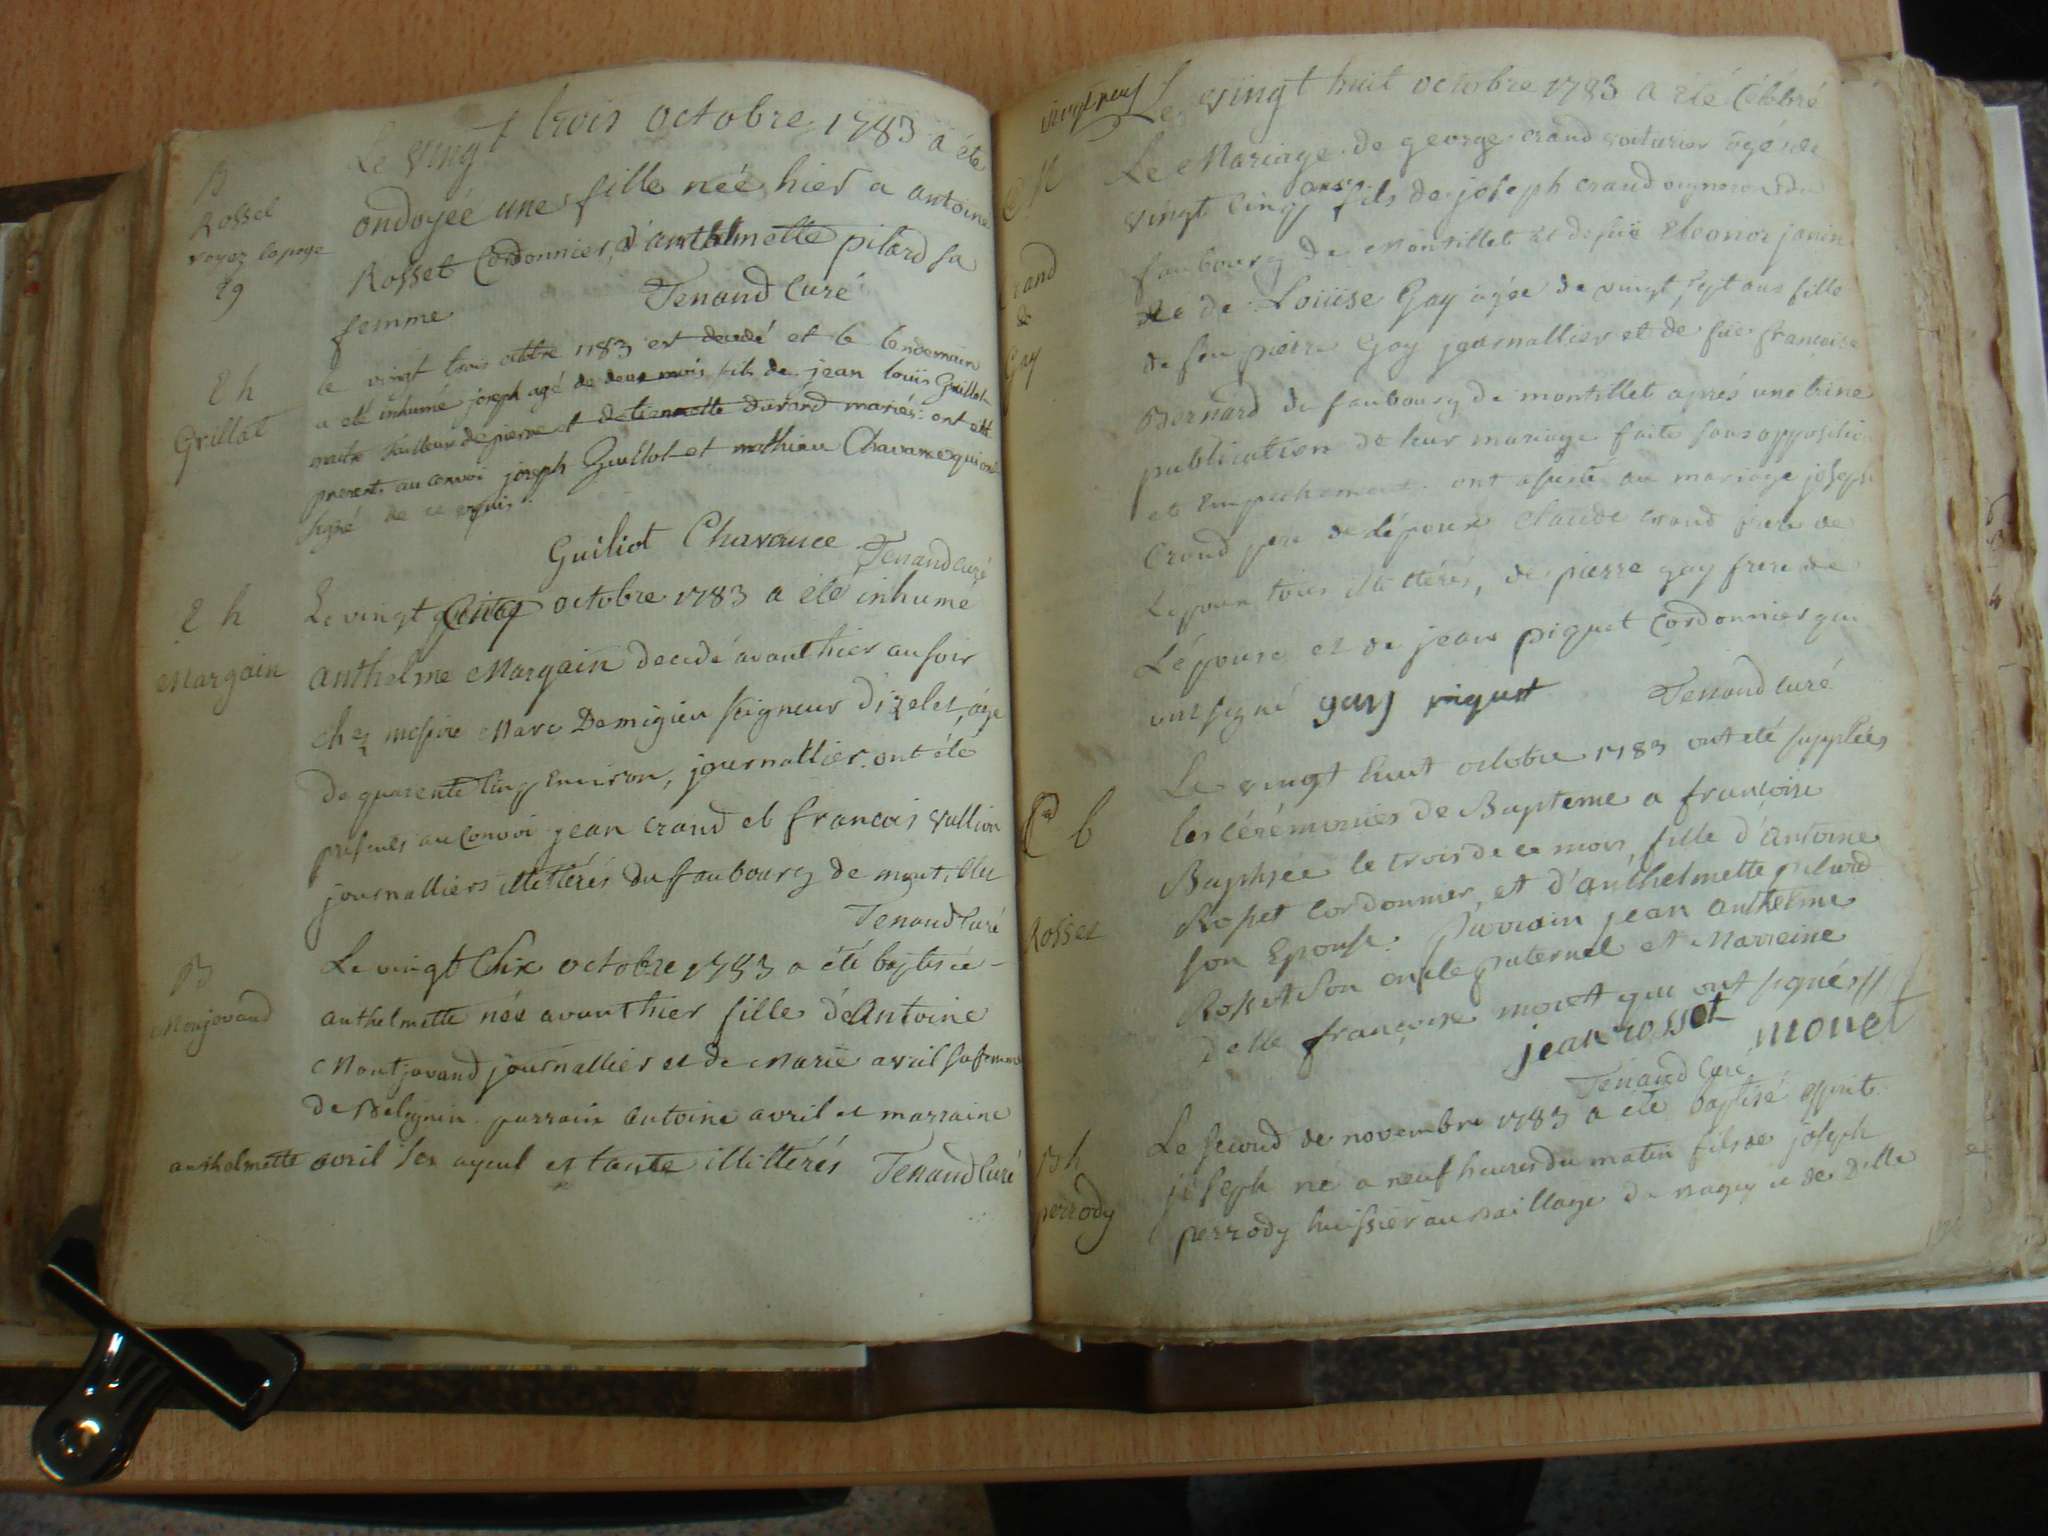 B
Rosset
voyez la page
29
Le vingt trois octobre 1783 a été
ondoyée une fille née hier a antoine
Rosset Cordonnier, d'anthelmette pilard sa
femme Tenand Curé
E h
Grillat
le vingt trois octbre 1783 est decedé et le lendemain
a eté inhumé joseph agé de deux mois fils de jean loüis Guillot
maitre tailleur de pierre et detiennette durand mariés: ont eté
presents au convoi joseph Guillot et mathieu Chavance qui ont
signé de ce requis.
Guiliot Chavance Tenand curé
E h
Margain
Le vingt cinq octobre 1783 a été inhumé
anthelme Margain decedé avant hier au soir
chez messire Marc Demigieu seigneur d'izelet, âgé
de quarente cinq environ, journallier. ont été
presents au convoi jean crand et francois vallion
journalliers illittérés du faubourg de montillet
Tenand Curé
B
Monjovand
Le vingt Six octobre 1783 a été baptisée
anthelmette née avant hier fille d'Antoine
Montjovand journallier et de Marie avril sa femme
de Belignin. parrain antoine avril et marraine
anthelmette avril ses ayeul et tante illittérés Tenand Curé
vingt neuf
M
Crand
&
Gay
Le vingt huit octobre 1783 a été Célébré
Le Mariage de george crand voiturier âgé de
vingt cinq ans fils de joseph crand vigneron du
faubourg de Montillet et de füe Eleonor janin
et de Loüise Gay agée de vingt sept ans fille
de feu pierre Gay journallier et de füe françoise
Bernard du faubourg de montillet aprés une trine
publication de leur mariage faite sans opposition
et Empechement. ont assisté au mariage joseph
Crand pere de l'époux claude crand frere de
L'epoux tous illittérés, de pierre gay frere de
L'épouse et de jean piquet Cordonnier qui
ont signé gay piquet Tenand Curé
b
Rosset
Le vingt huit octobre 1783 ont été supplées
les cérémonies de Bapteme a françoise
Baptisée le trois de ce mois, fille d'antoine
Rosset cordonnier, et d'anthelmette pilard
son Epouse. Parrain jean anthelme
Rosset son oncle paternel et Marreine
Delle françoise monet qui ont signés //
jean rosset monet
Tenand Curé
B h
perrody
Le second de novembre 1783 a été baptisé
joseph né a neuf heures du matin fils de joseph
perrody huissier au Baillage du Bugey et de Dlle